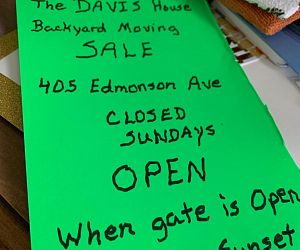 The DAVIS House
Backyard Moving
SALE
405 Edmonson Ave
CLOSED
SUNDAYS
OPEN
When gate is Open
Sunset